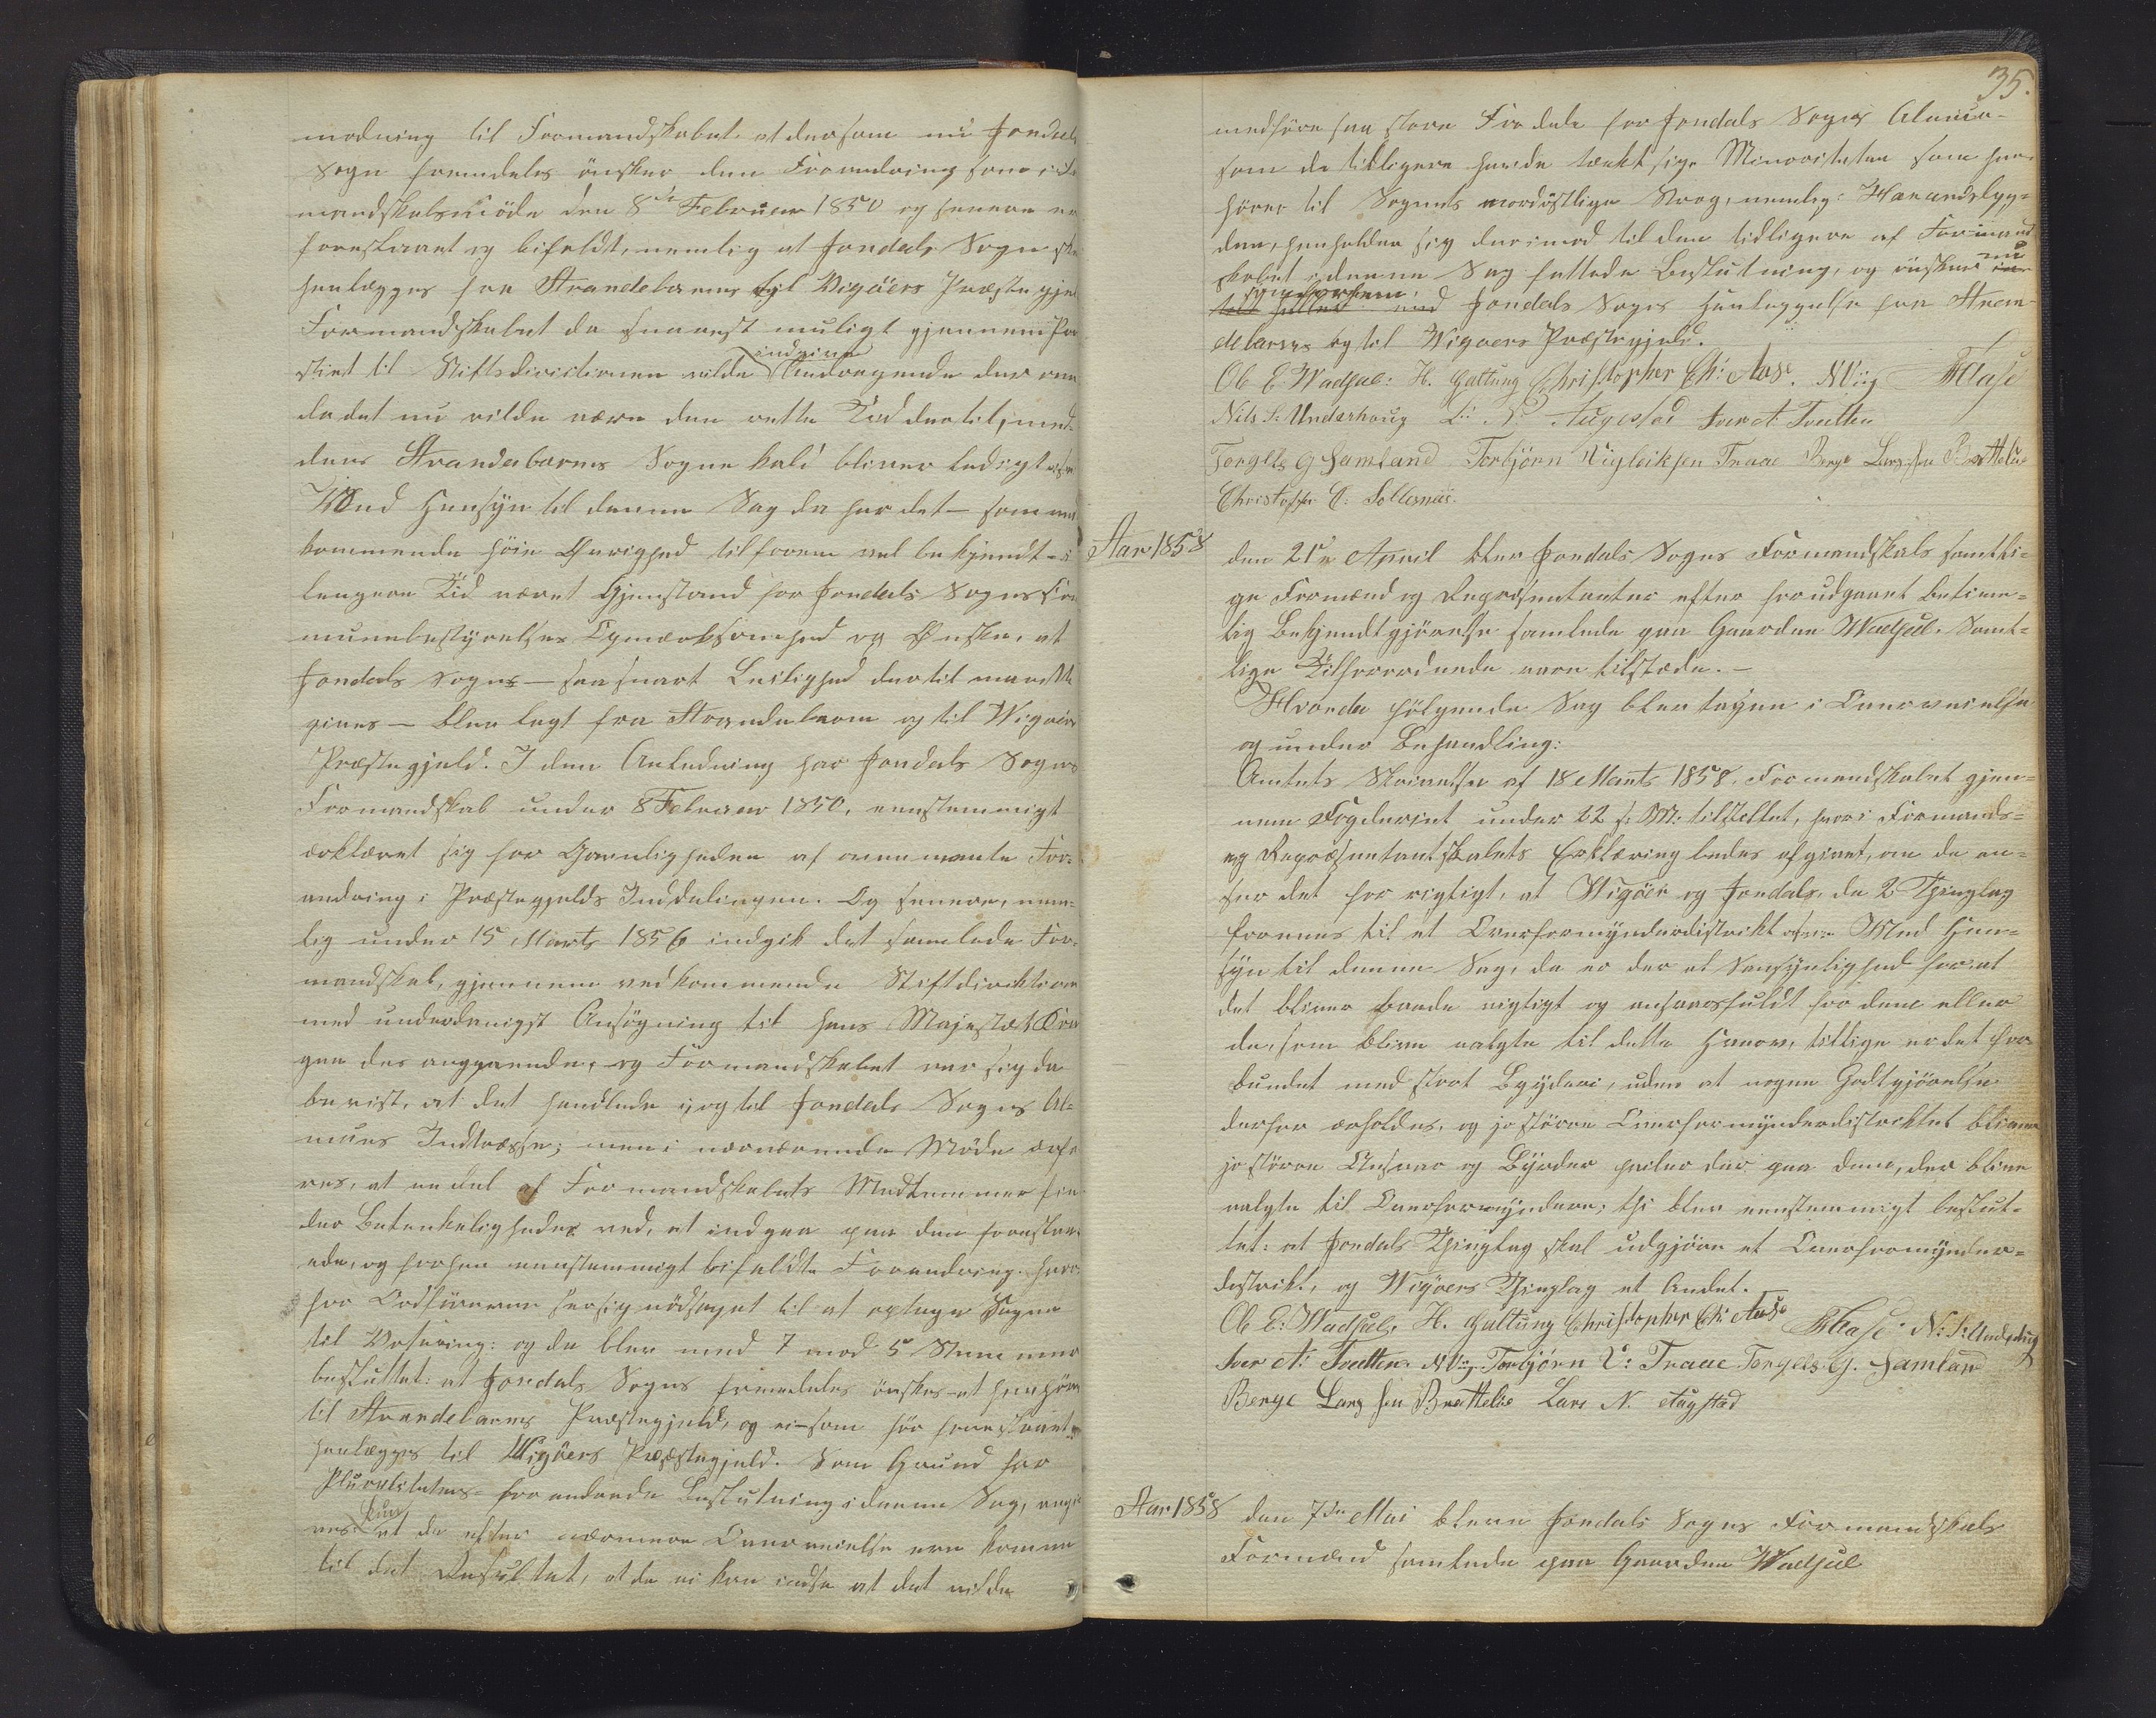 modning til Formandskabet at dersom nu Jondals
Sogn fremdeles ønsker den Forandring som i For
mandskabsmöde den 8de Februar 1850 og senere er
foreslaaet og bifaldt, nemlig at Jondals Sogn skal
henlægges fra Strandebarms til Vigöers Præstegjel
Formandskabet da snarest muligt gjennem Pro
stiet til Stiftsdirectionen vilde indgive Andragende derom
da det nu vilde være den rette Tid dertil, med-
dens Strandebarms Sognekald bliver ledigt
Med Hensyn til denne Sag da har det – som ved
kommende höie Øvrighed tilforn vel bekjendt – i
lengere Tid været Gjenstand for Jondals Sogns Com
munebestyrelses Opmærksomhed og Ønske, at
Jondals Sogn – saasnart Leilighed dertil maatte
gives – blev lagt fra Strandebarm og til Wigöers
Præstegjeld. I den Anledning har Jondals Sogns
Formandskab under 8 Februar 1850, eenstemmigt
erklæret sig for Gavnligheden af ovenmeldte For-
andring i Præstegjelds Inddelingen. Og senere, nem-
lig under 15 Marts 1856 indgik det samlede For-
mandskab, gjennem vedkommende Stiftdirektion
med underdanigst Ansögning til Hans Majestæt Kon
gen des angaaende, og Formandskabet var sig da
bevist, at det handlede og til Jondals Sogns Al-
mues Indtræsse; men i nærværende Möde erfa
res, at en del af Formandskabets Medlemmer fin
der Betenkeligheder ved, at indgaa paa den foreslaa
ede, og forhen eenstemmigt bifaldte Forandring. hvor-
for Ordföreren saa sig nödsaget til at optage Sagen
til Votering: og da blev med 7 mod 5 Stemmer
besluttet: at Jondals Sogn fremdeles önskes at henhöre
til Strandebarms Præstegjeld, og ei – som för foreslaaet –
henlægges til Wigöers Præstegjeld. Som Grund for
Pluralitetens forandrede Beslutning i denne Sag, angi
ves kun at de efter nærmere Overveielse ere komne
til det Resultat, at de ei kan indse at det vilde
35.
medföre saa store Fordele for Jondals Sogns Almue
som de tidligere havde tænkt sig. Minoriteten som hen-
hörer til Sognets nordöstlige Strøg, nemlig: Herandsbyg-
den, henholder sig derimod til den tidligere af Formand
skabet i denne Sag fattede Beslutning, og önsker nu
som forhen, Jondals Sogns Henleggelse fra Stran-
debarms og til Wigöers Præstegjeld.
Ole E. Wadsel: H. Gattung Christopher Ch: Aase. N Viig Aase
Nils S. Underhoug L: N: Augestad Iver A Tvedten
Torgels G Samland Torbjörn Vigleiksen Traae Berge Larssen Brattebøe
Christopher E: Solesnæs.
Aar 1858
den 21de April blev Jondals Sogns Formandskabs samtli-
ge Formænd og Repræsentanter efter forudgaaet betime-
lig Bekjendtgjörelse samlede paa Gaarden Wadsel. Samt-
lige Tilforordnede vare tilstede. –
Hvorda fölgende Sag blev tagen i Overveielse
og under Behandling:
Amtets Skrivelse af 18 Marts 1858, Formandskabet gjen-
nem Fogderiet under 22 s: M: tilstillet, hvori Formands-
og Repræsentantskabets Erklæring bedes afgivet, om de an-
ser det for rigtigt, at Wigöer og Jondals, de 2 Thinglag
forenes til et Overformynderdistrikt o.s.v. Med Hen-
syn til denne Sag, da er der al Sansynlighed for, at
det bliver baade vigtigt og ansvarsfuldt for dem eller
de, som blive valgte til dette Hverv, tillige er det for
bundet med stort Bryderi, uden at nogen Godtgjörelse
derfor erholdes, og jo större Overformynderdistriktet bliver
jo större Ansvar og Byrder hviler der paa dem, der blive
valgte til Overformyndere; thi blev eenstemmigt beslut-
tet: at Jondals Thinglag skal udgjöre et Overformynder-
distrikt, og Wigöers Thinglag et Andet.
Ole E: Wadsel, H. Gattung Christopher Ch: Aase Aase N: S: Underhoug
Iver A: Tvedten. N Viig. Torbjörn V: Traae Torgels. G. Samland
Berge Larssen Brattebøe Lars N. Augstad
Aar 1858 den 7de Mai bleve Jondals Sogns Formandskabs
Formænd samlede paa Gaarden Wadsel